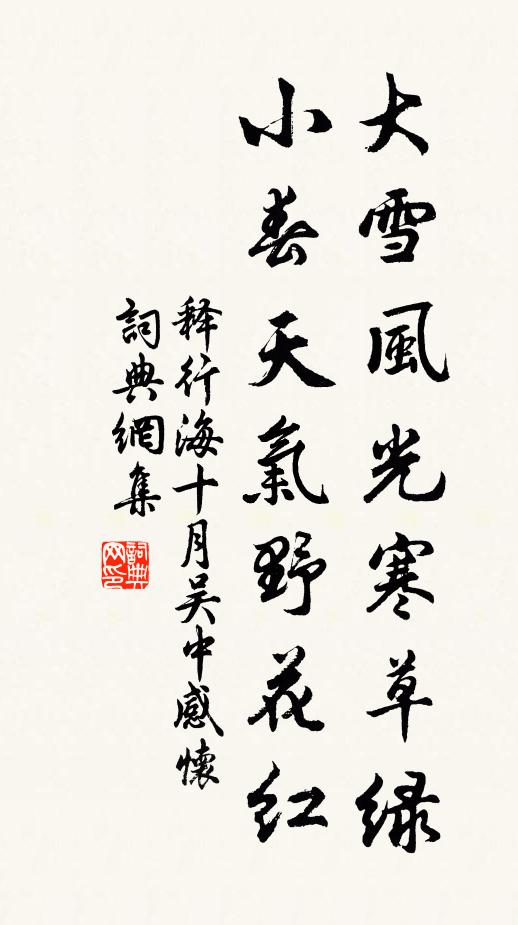 大雪風光寒草緑
小春天氣野花紅
释行海十月吴中感懷
詞典網集
詞典
网印